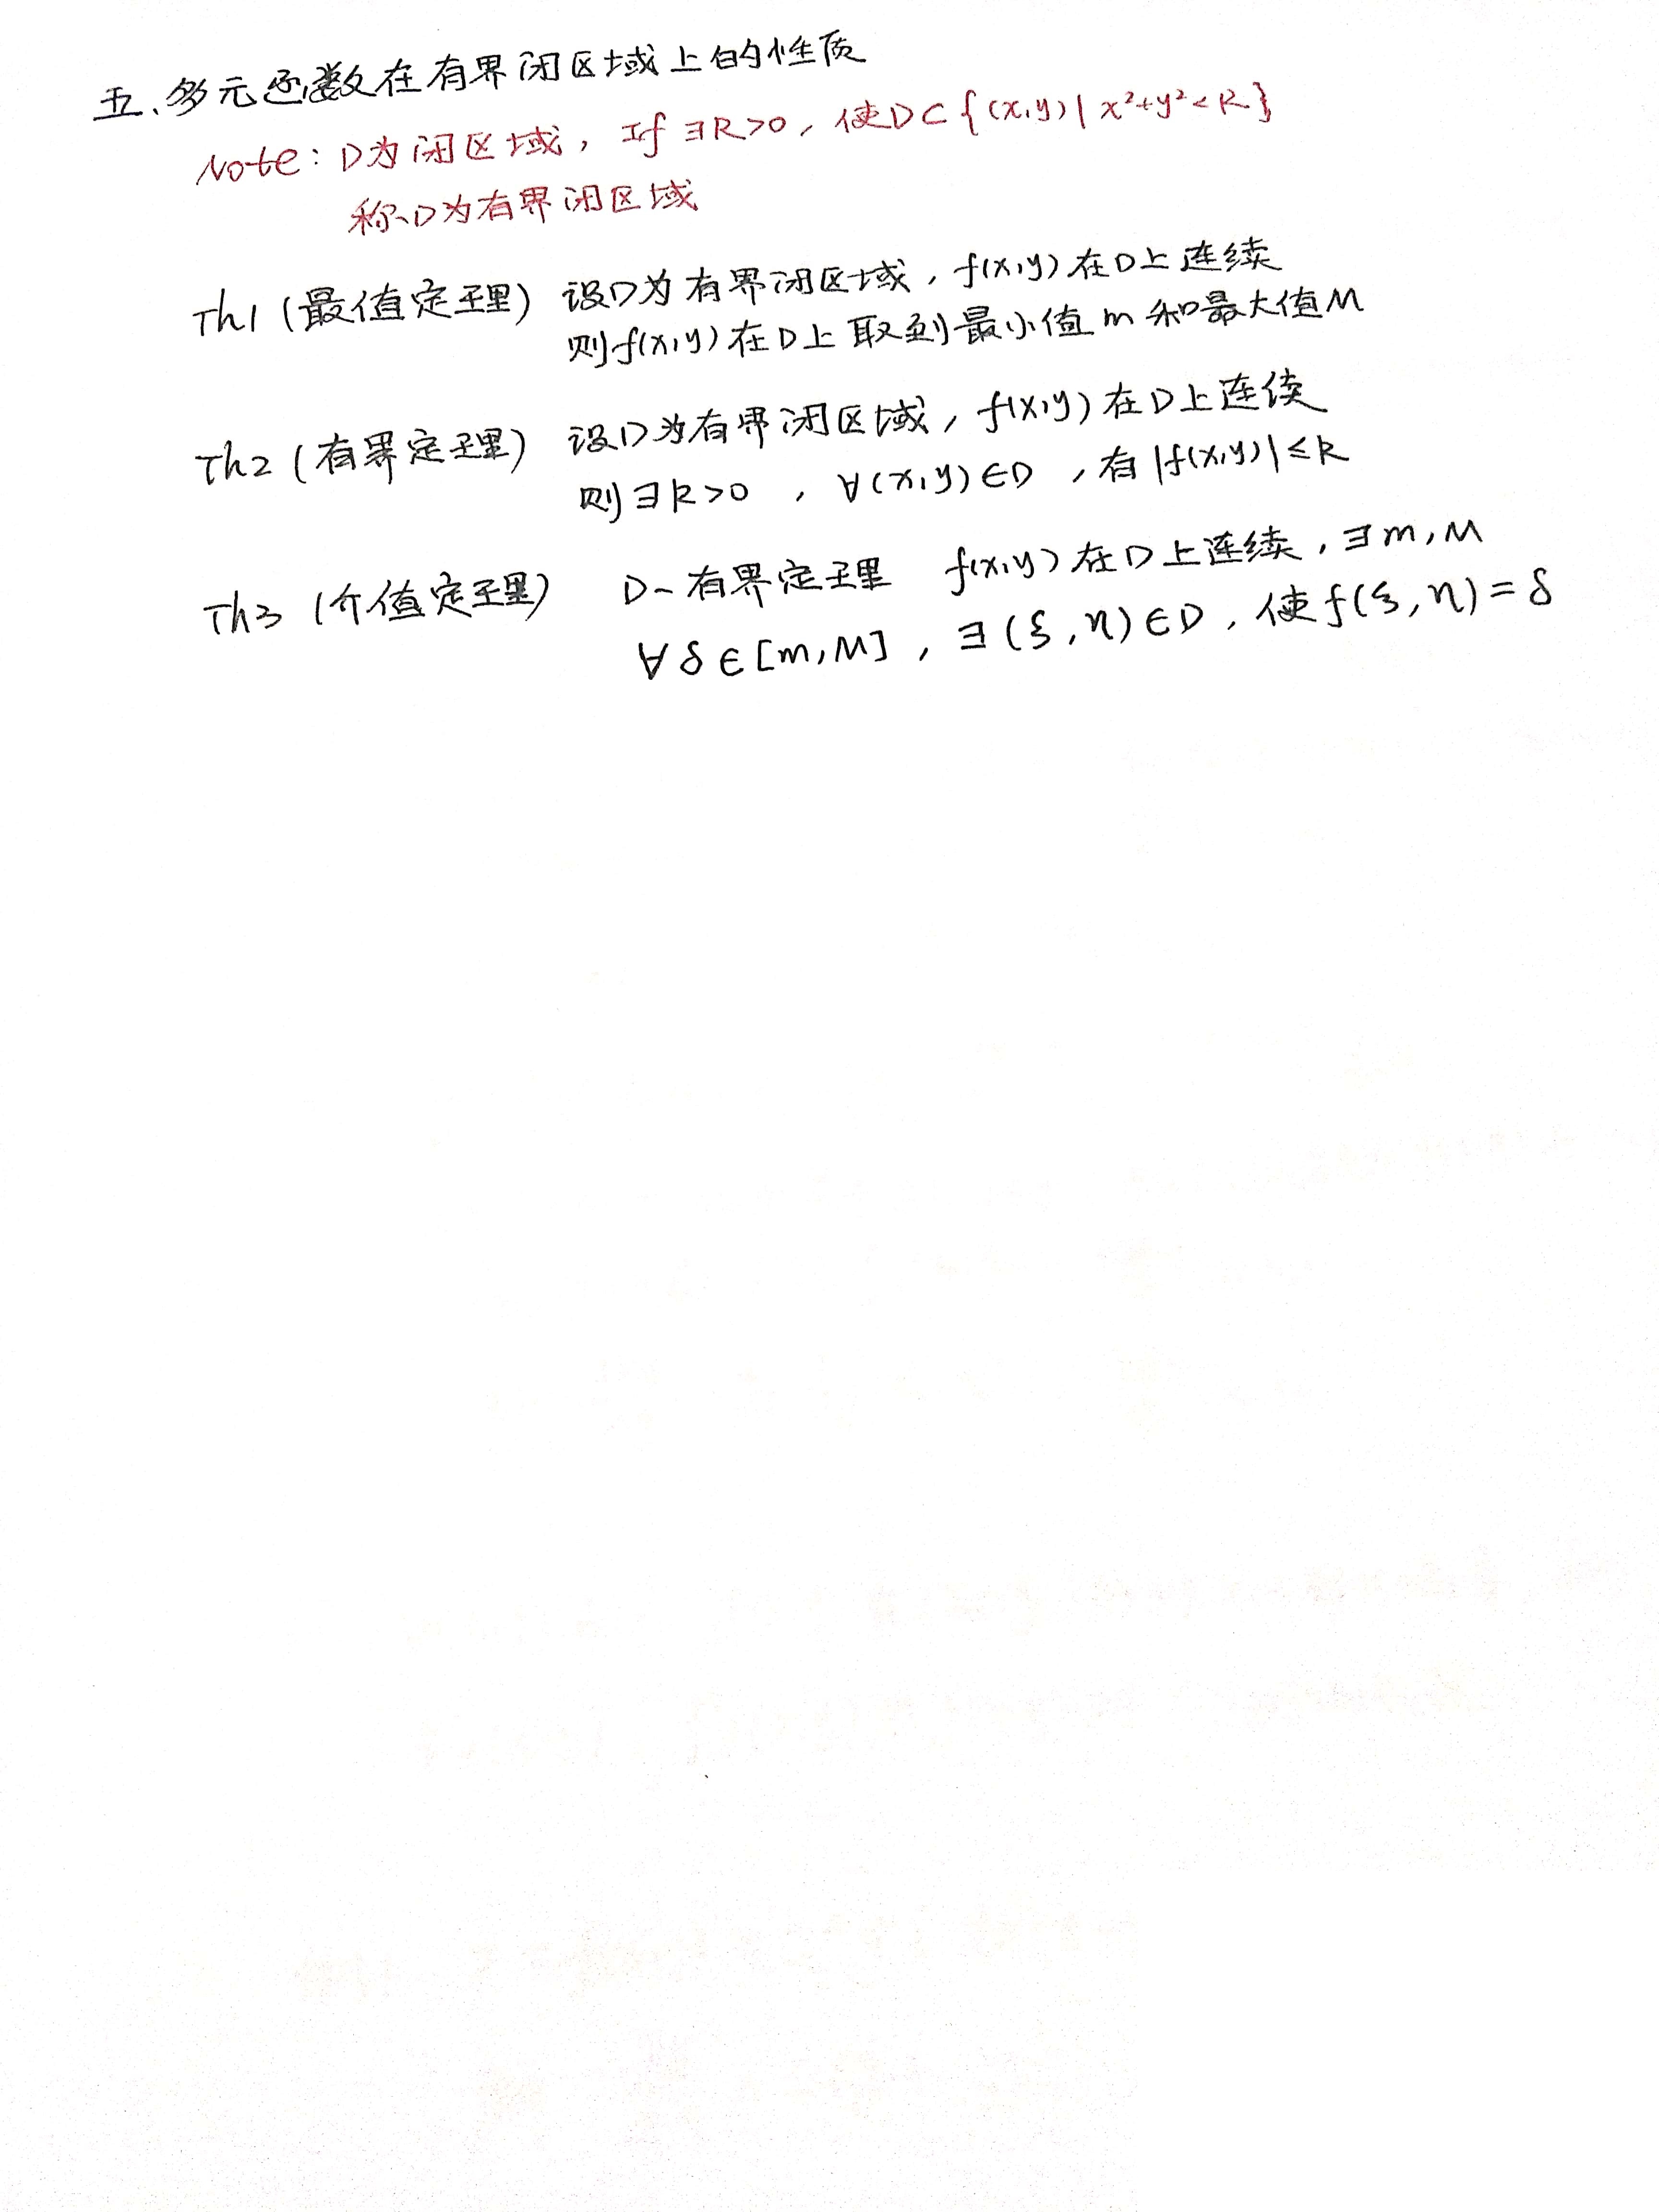 五、多元函数在有界闭区域上的性质
Note: D为闭区域, If ∃R>0, 使D⊂{(x,y)| x²+y²<R}
称D为有界闭区域
Th1 (最值定理) 设D为有界闭区域, f(x,y)在D上连续
则f(x,y)在D上取到最小值m和最大值M
Th2 (有界定理) 设D为有界闭区域, f(x,y)在D上连续
则∃k>0, ∀(x,y)∈D, 有|f(x,y)|≤k
Th3 (介值定理) D-有界定理 f(x,y)在D上连续, ∃m,M
∀δ∈[m,M], ∃(ξ,η)∈D, 使f(ξ,η)=δ